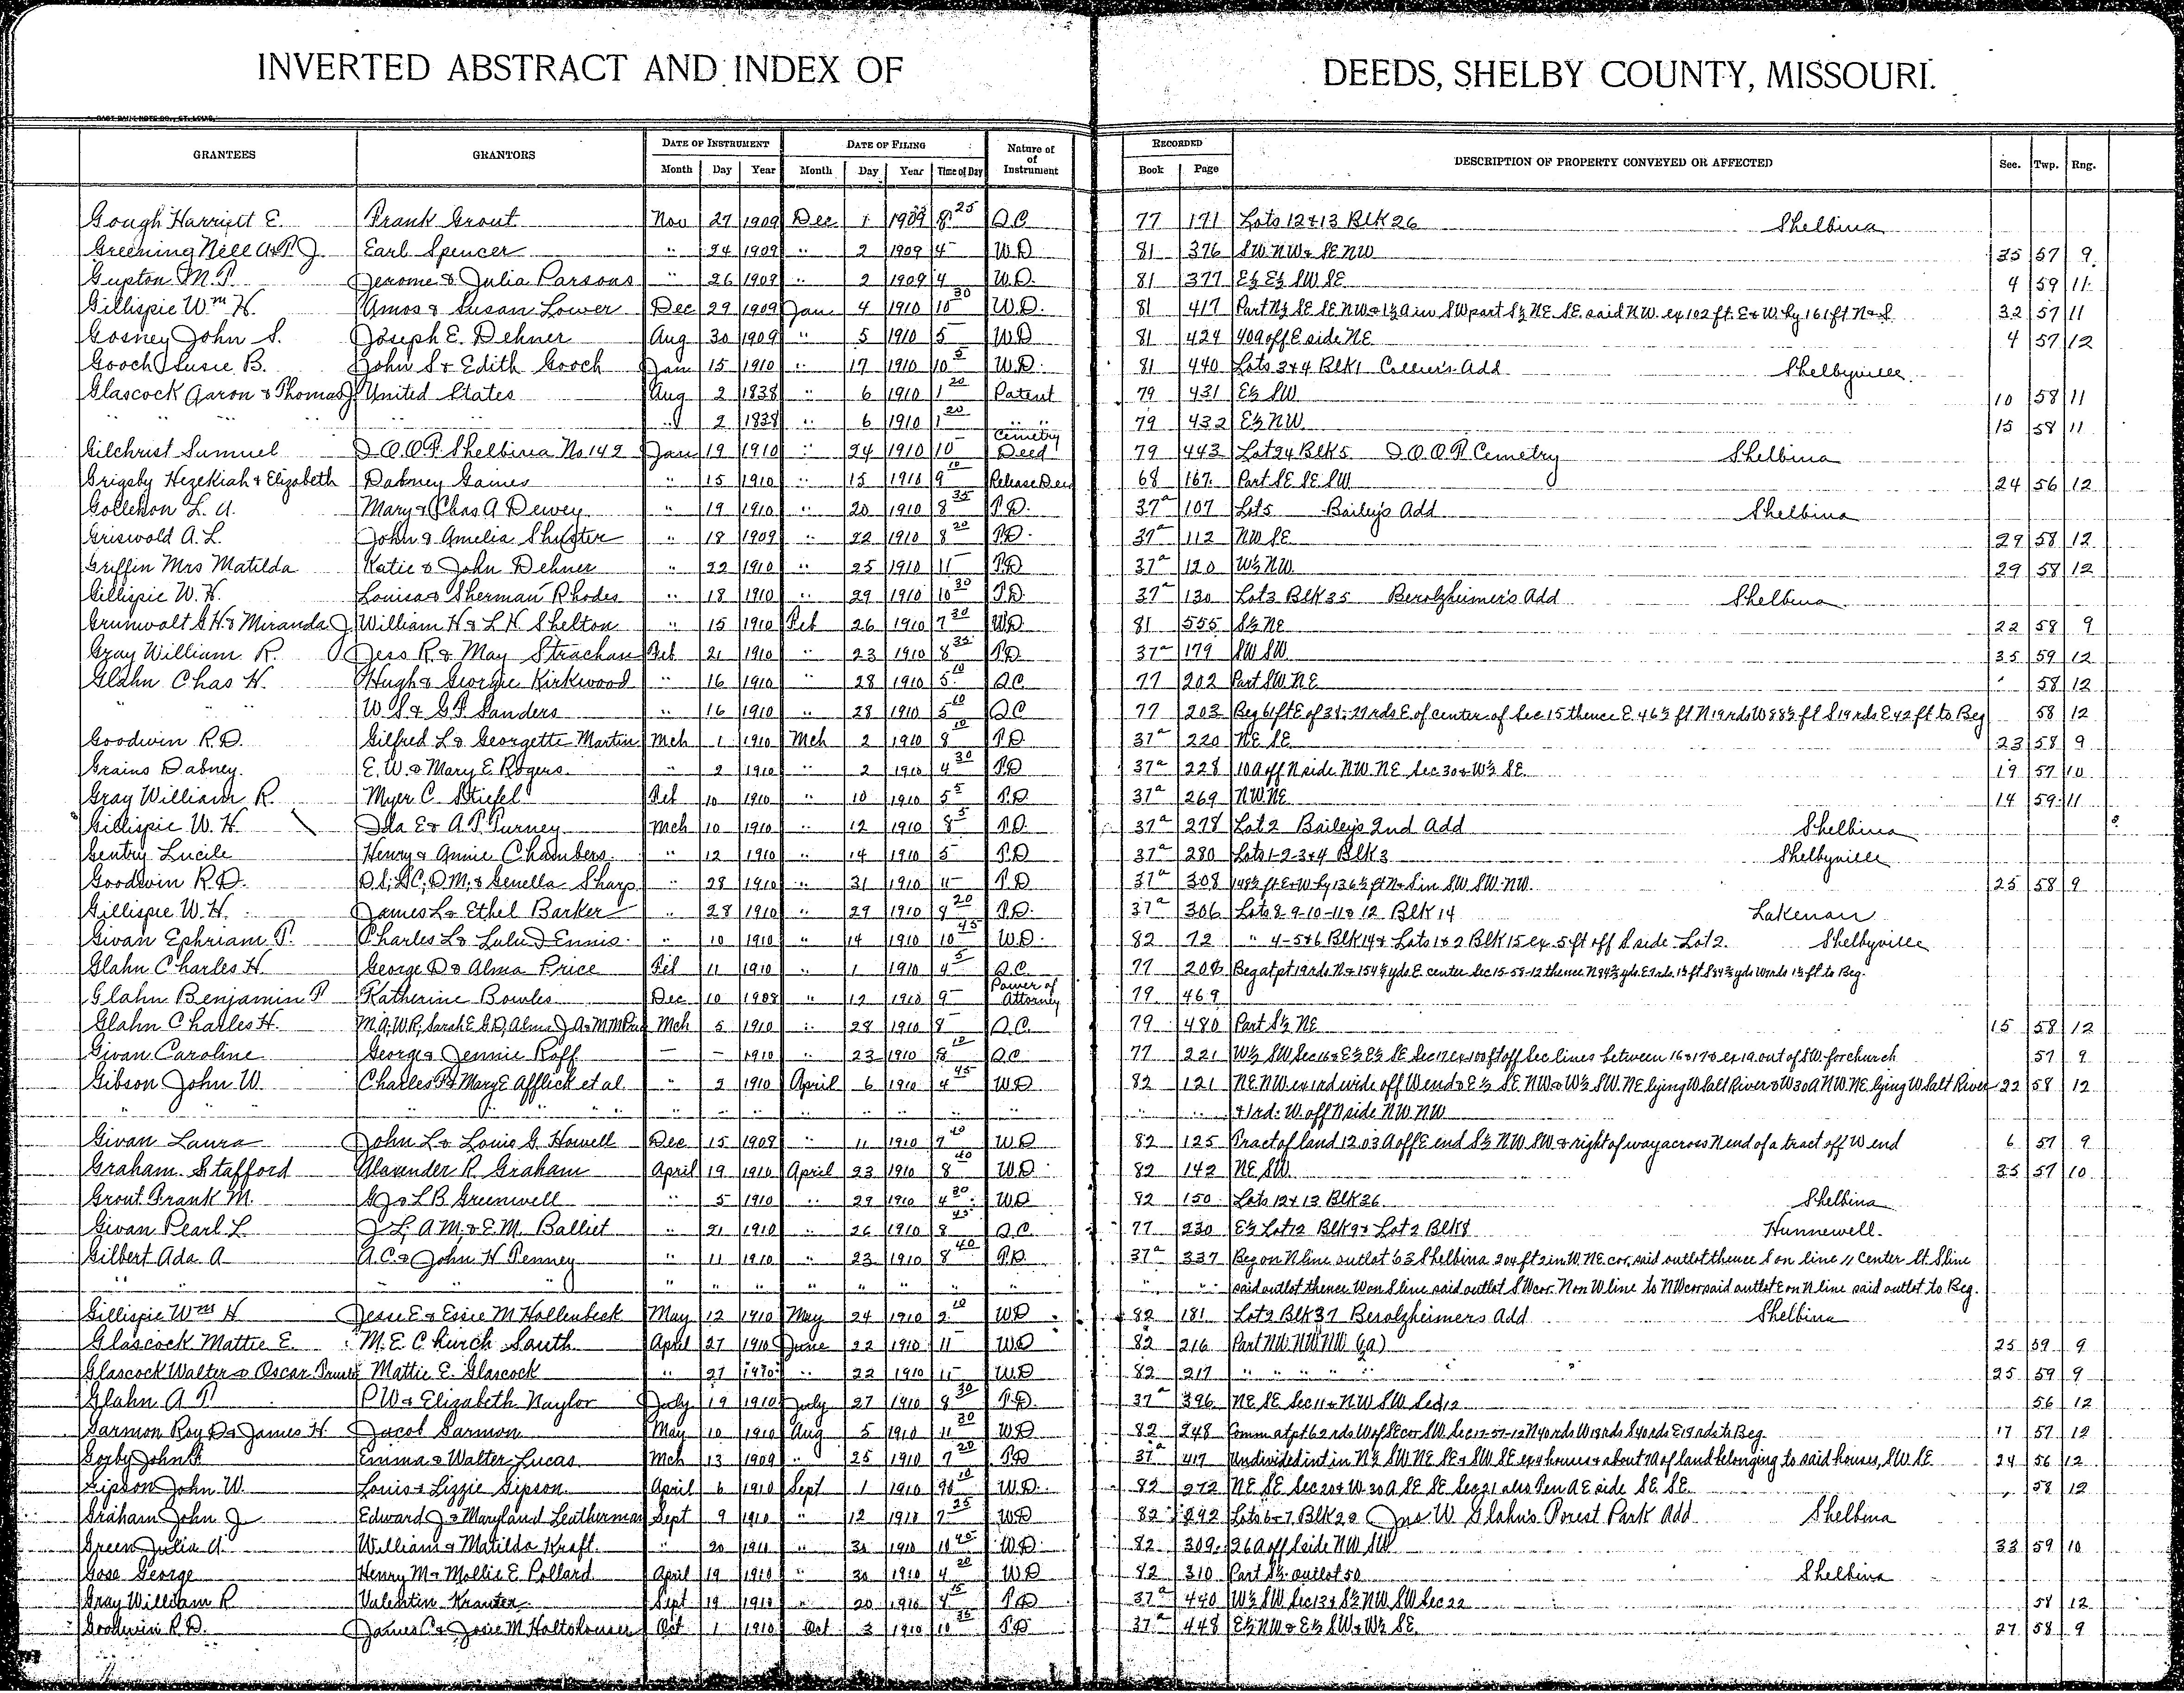 INVERTED ABSTRACT AND INDEX OF DEEDS, SHELBY COUNTY, MISSOURI.
GRANTEES GRANTORS DATE OF INSTRUMENT DATE OF FILING Nature of Instrument RECORDED DESCRIPTION OF PROPERTY CONVEYED OR AFFECTED Sec. Twp. Rng.
Month Day Year Month Day Year Time of Day Book Page
Gough Harriett E. Frank Grout Nov 27 1909 Dec 1 1909 8 25 Q.C. 77 171 Lots 12 & 13 Blk 26 Shelbina
Greening Nell A & P. J. Earl Spencer " 24 1909 " 2 1909 4 W.D. 81 376 SW. NW & SE NW 35 57 9
Gupton M. P. Jerome & Julia Parsons " 26 1909 " 2 1909 4 W.D. 81 377 E½ E½ SW SE 4 59 11
Gillispie Wm H. Amos & Susan Lower Dec 29 1909 Jan 4 1910 10 30 W.D. 81 417 Part N½ SE SE NW & 1½ A in SW part S½ NE SE said NW. ex 102 ft. E & W. by 161 ft N & S 32 57 11
Gosney John S. Joseph E. Dehner Aug 30 1909 " 5 1910 5 W.D 81 424 40a off E side NE 4 57 12
Gooch Susie B. John S & Edith Gooch Jan 15 1910 " 17 1910 10 5 W.D. 81 440 Lots 3 & 4 Blk 1 Collier's Add Shelbyville
Glascock Aaron & Thomas J United States Aug 2 1838 " 6 1910 1 20 Patent 79 431 E½ SW 10 58 11
" " " " 2 1838 " 6 1910 1 20 " 79 432 E½ NW 15 58 11
Gilchrist Sumuel I.O.O.F. Shelbina No 142 Jan 19 1910 " 24 1910 10 Cemetry Deed 79 443 Lot 24 Blk 5 I O O F Cemetry Shelbina
Grigsby Hezekiah & Elizabeth Dabney Gaines " 15 1910 " 15 1910 9 10 Release Deed 68 167 Part SE SE SW 24 56 12
Gollehon L. A. Mary & Chas A Dewey " 19 1910 " 20 1910 8 35 T.D. 37a 107 Lot 5 Bailey's Add Shelbina
Griswold A. L. John & Amelia Shuster " 18 1909 " 22 1910 8 20 T.D. 37a 112 NW SE 29 58 12
Griffin Mrs Matilda Katie & John Dehner " 22 1910 " 25 1910 11 T.D 37a 120 W½ NW 29 58 12
Gillispie W. H. Louisa & Sherman Rhodes " 18 1910 " 29 1910 10 30 T.D. 37a 130 Lot 3 Blk 35 Berolzheimer's Add Shelbina
Grunwalt G. H. & Miranda J William H & L H Shelton " 15 1910 Feb 26 1910 7 30 W.D. 81 555 S½ NE 22 58 9
Gray William R. Jess R. & May Strachan Feb 21 1910 " 23 1910 8 35 T.D 37a 179 SW SW 35 59 12
Glahn Chas H. Hugh & Georgie Kirkwood " 16 1910 " 28 1910 5 10 Q.C 77 202 Part SW NE 58 12
" " W. S. & G. P. Sanders " 16 1910 " 28 1910 5 10 Q.C 77 203 Beg 61 ft E of 31.29 rds E. of center of Sec 15 thence E. 46½ ft N 19 rds W 88½ ft S 19 rds E 42 ft to Beg 58 12
Goodwin R. D. Gilfred L & Georgette Martin Mch 1 1910 Mch 2 1910 8 10 T.D. 37a 220 NE SE 23 58 9
Grains Dabney. E. W. & Mary E Rogers " 2 1910 " 2 1910 4 30 T.D 37a 228 10 A off N side NW. NE Sec 30 & W½ SE 19 57 10
Gray William R. Myer C. Stiefel Feb 10 1910 " 10 1910 5 5 T.D. 37a 269 NW NE 14 59 11
Gillispie W. H. Ida E & A. P. Purney Mch 10 1910 " 12 1910 8 5 T.D. 37a 278 Lot 2 Bailey's 2nd Add Shelbina
Gentry Lucile Henry & Annie Chambers " 12 1910 " 14 1910 5 T.D 37a 280 Lots 1-2-3 & 4 Blk 3 Shelbyville
Goodwin R. D. & Genella Sharp " 28 1910 " 31 1910 11 T.D 37a 308 148½ ft E & W by 136½ ft N & S in SW SW NW. 25 58 9
Gillispie W. H. James L & Ethel Barker " 28 1910 " 29 1910 9 20 T.D. 37a 306 Lots 8-9-10-11 & 12 Blk 14 Lakenan
Givan Ephriam P. Charles L & Lulu D Ennis " 10 1910 " 14 1910 10 45 W.D. 82 72 " 4-5 & 6 Blk 14 & Lots 1 & 2 Blk 15 ex 5 ft off S side Lot 2. Shelbyville
Glahn Charles H. George D & Alma Price Feb 11 1910 " 1 1910 4 5 Q.C. 77 208 Beg at pt 19 rds N & 154½ yds E. center Sec 15-58-12 thence to Beg.
Glahn Benjamin P Katherine Bowles Dec 10 1908 " 12 1910 9 Power of Attorney 79 469
Glahn Charles H. Mch 5 1910 " 28 1910 8 Q.C. 79 480 Part S½ NE 15 58 12
Givan Caroline George & Jennie Roff — — 1910 " 23 1910 8 10 Q.C 77 221 W½ SW Sec 16 & E½ E½ SE Sec 17 ex 100 ft off Sec lines between 16 & 17 & ex 1 a. out of SW. for church 57 9
Gibson John W. Charles B & Mary E Afflick et al " 2 1910 April 6 1910 4 45 W.D 82 121 NE NW ex 1 rd wide off W end & E½ SE NW & W½ SW. NE lying W Salt River & W 30 A NW. NE lying W Salt River 22 58 12
" " " " " " " " " " " " & 1 rd. W. off N side NW. NW
Givan Laura John L & Louis G. Howell Dec 15 1908 " 11 1910 9 40 W.D 82 125 Tract of land 12.03 A off E end S½ NW SW & right of way across N end of a tract off W end 6 57 9
Graham Stafford Alavender R. Graham April 19 1910 April 23 1910 8 40 W.D. 82 142 NE SW 35 57 10
Grout Frank M. G. J & L B Greenwell " 5 1910 " 29 1910 4 30 W.D 82 150 Lots 12 & 13 Blk 36 Shelbina
Givan Pearl L. J L, A M, & E. M. Balliet " 21 1910 " 26 1910 8 45 Q.C. 77 230 E½ Lot 12 Blk 9 & Lot 2 Blk 8 Hunnewell
Gilbert Ada A A. C. & John H Penney " 11 1910 " 23 1910 8 40 T.D. 37a 337 Beg on N line outlot 63 Shelbina 204 ft 2 in W. NE cor. said outlot thence S on line // Center St. S line
" " " " " " " " " " " " said outlot thence W on S line said outlot SW cor. N on W line to NW cor said outlot E on N line said outlot to Beg.
Gillispie Wm H Jesse E & Essie M Hollenbeck May 12 1910 May 24 1910 2 10 W.D 82 181 Lot 2 Blk 37 Berolzheimers Add Shelbina
Glascock Mattie E. M. E. Church South April 27 1910 June 22 1910 11 W.D 82 216 Part NW. NW NW (2a) 25 59 9
Glascock Walter & Oscar Mattie E. Glascock " 27 1910 " 22 1910 11 W.D 82 217 " " " " " 25 59 9
Glahn A P. P. W & Elizabeth Naylor July 19 1910 July 27 1910 9 30 T.D. 37a 396 NE SE Sec 11 & NW SW Sec 12 56 12
Sarmon Roy D & James H Jacob Sarmon May 10 1910 Aug 5 1910 11 30 W.D 82 248 Comm at pt 62 rds W of SE cor SW Sec 17-57-12 N 40 rds W 18 rds S 40 rds E 19 rds to Beg. 17 57 12
Emma & Walter Lucas Mch 13 1909 " 25 1910 9 20 T.D 37a 417 Undivided int in N½ SW NE SE & SW SE ex 4 houses & about 10 A of land belonging to said houses, SW SE 24 56 12
Gipson John W. Louis & Lizzie Gipson April 6 1910 Sept 1 1910 W.D. 82 272 NE SE Sec 20 & W. 30 A SE SE Sec 21 also Ten A E side SE SE 58 12
Graham John J Edward J & Maryland Leatherman Sept 9 1910 " 12 1910 7 25 W.D 82 292 Lots 6-7 Blk 20 Jno W Glahn's Forest Park Add Shelbina
Green Julia A. William & Matilda Kraft " 20 1910 " 30 1910 11 45 W.D. 82 309 26 A off S side NW SW 33 59 10
Gose George Henry M & Mollie E Pollard April 19 1910 " 30 1910 4 20 W.D 82 310 Part S½ outlot 50 Shelbina
Gray William R Valentin Kranter Sept 19 1910 " 20 1910 4 15 T.D 37a 440 W½ SW Sec 13 & S½ NW SW Sec 22 58 12
Goodwin R. D. James C & Josie M Holtshouser Oct 1 1910 Oct 3 1910 10 35 T.D 37a 448 E½ NW & E½ SW & W½ SE 27 58 9